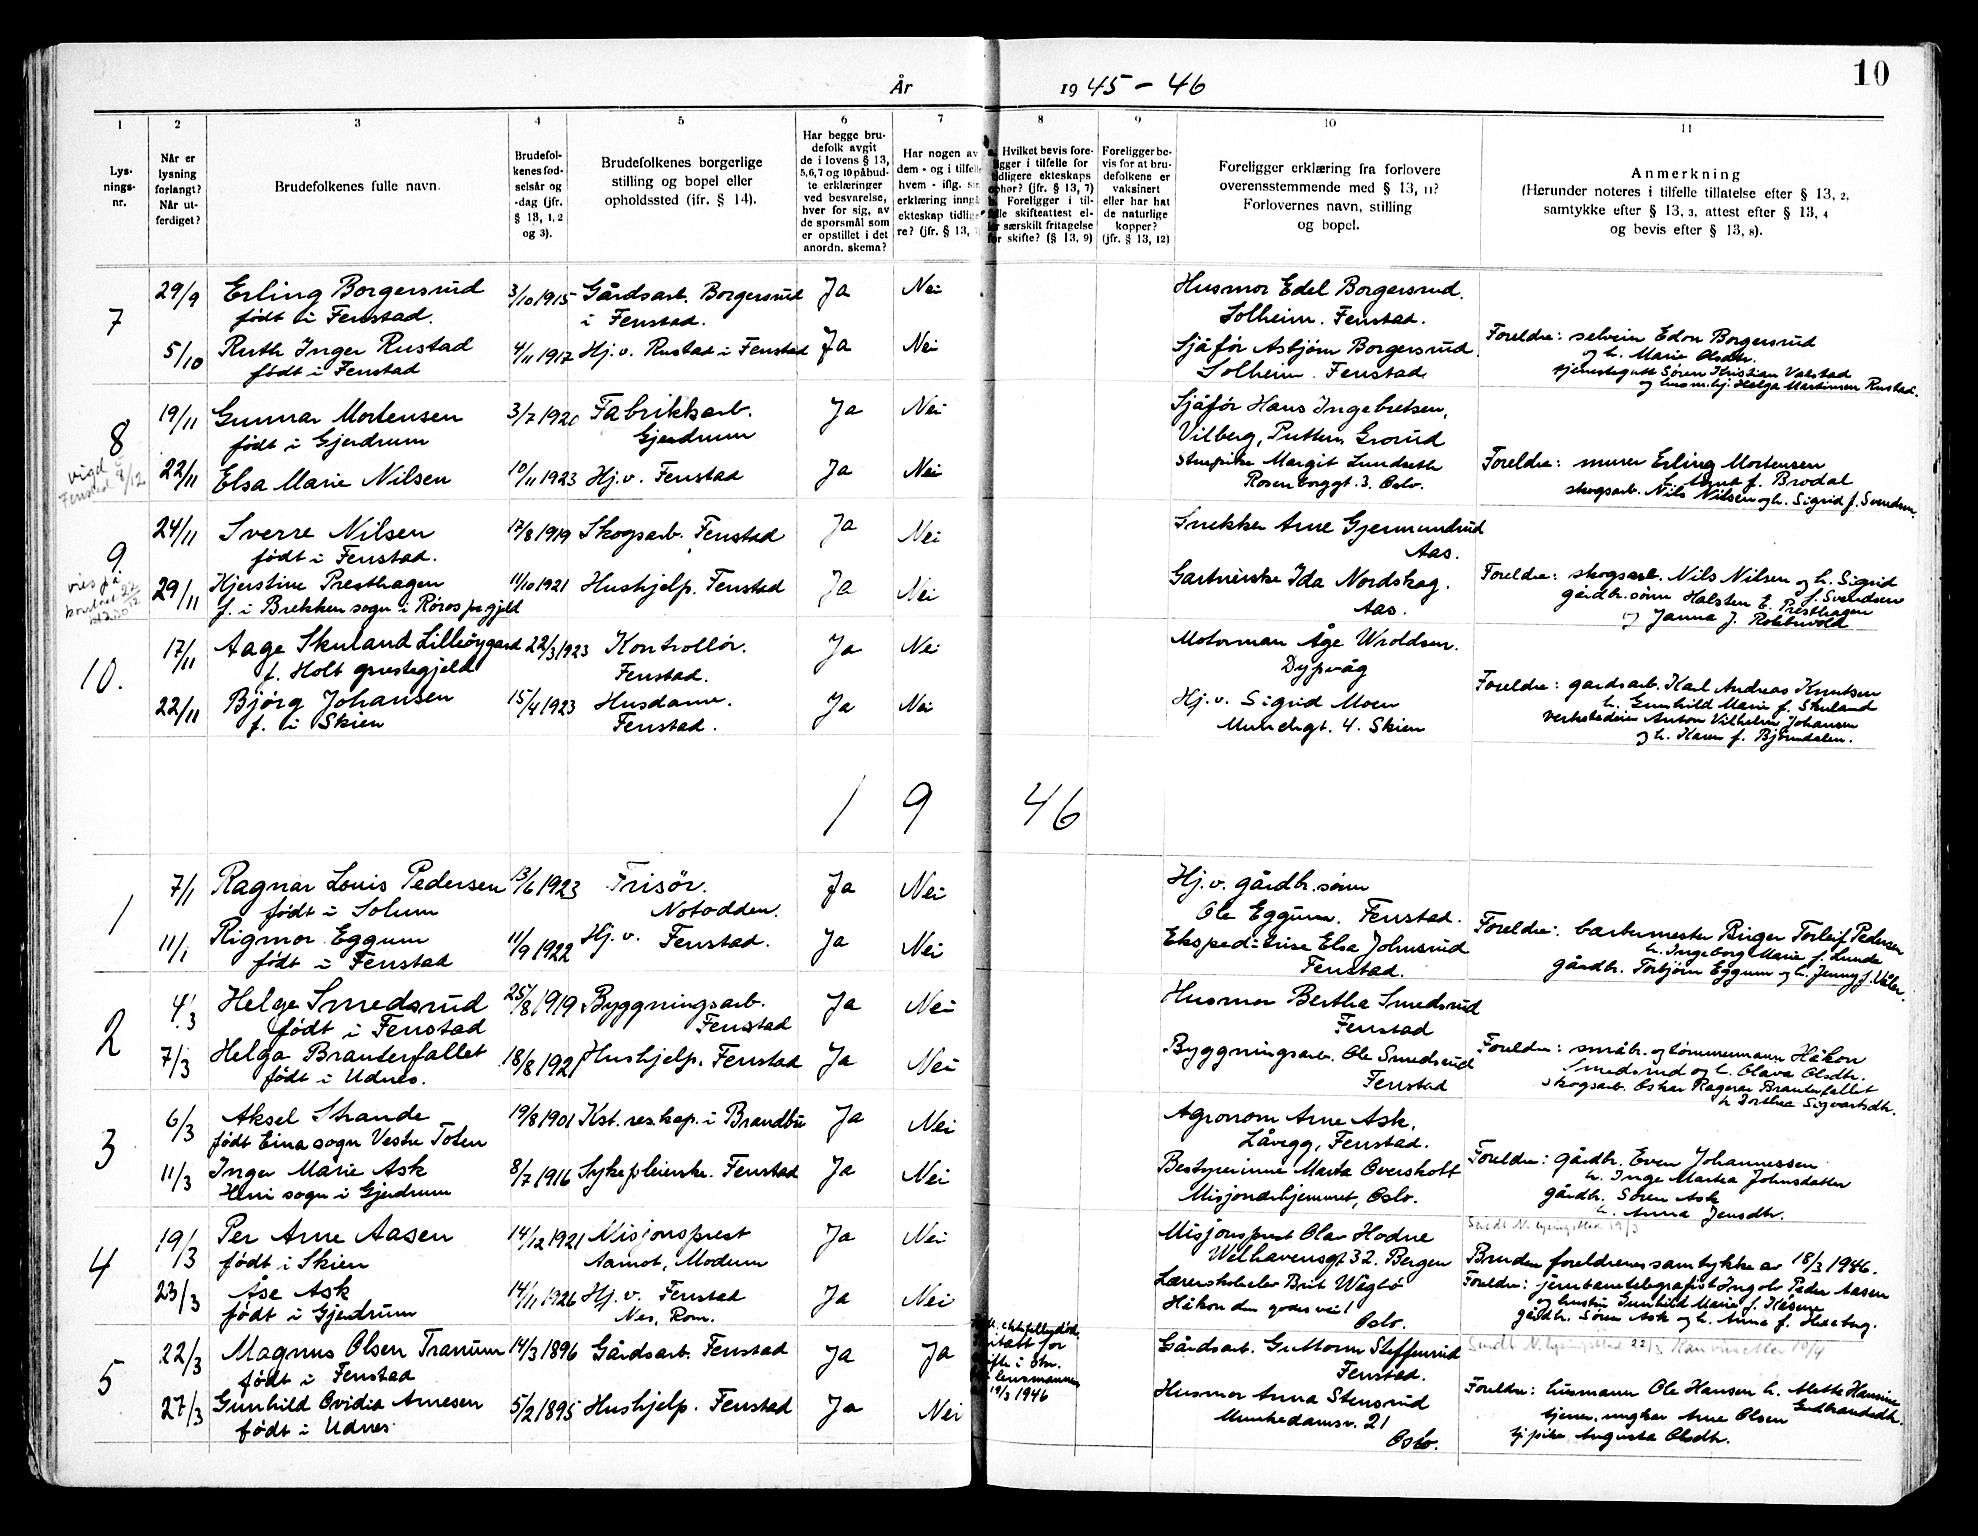 10
År 1945 - 46
1 2 3 4 5 6 7 8 9 10 11
Lys-
nings-
nr.
Når er
lysning
forlangt?
Når ut-
ferdiget?
Brudefolkenes fulle navn.
Brudefol-
kenes fød-
selsår og
-dag (jfr.
§ 13, 1, 2
og 3).
Brudefolkenes borgerlige
stilling og bopel eller
opholdssted (jfr. § 14).
Har begge bru-
defolk avgit
de i lovens § 13,
5,6,7 og 10 påbud-
te erklæringer
ved besvarelse,
hver for sig, av
de spørsmål som
er opstillet i det
anordn. skema?
Har nogen av
dem - og i tilfelle
hvem - iflg. sin
erklæring inngå
ekteskap tidlige
re? (jfr. § 13,
Hvilket bevis fore-
ligger i tilfelle for
tidligere ekteskaps
ophør? (jfr. § 13, 7)
Foreligger i til-
felle skifteattest el-
er særskilt fritagelse
for skifte? (§ 13, 9)
Foreligger be-
vis for at bru-
defolkene er
vaksinert
eller har hat
de naturlige
kopper?
(jfr. § 13, 12)
Foreligger erklæring fra forlovere
overensstemmende med § 13, 11?
Forlovernes navn, stilling
og bopel.
Anmerkning
(Herunder noteres i tilfelle tillatelse efter § 13, 2,
samtykke efter § 13, 3, attest efter § 13, 4
og bevis efter § 13, 8).
7
29/9 Erling Borgersrud 3/10 1915 Gårdsarb. Borgersrud Ja Nei Husmor Edel Borgersrud.
født i Fenstad. i Fenstad. Solheim. Fenstad.
5/10 Ruth Inger Rustad 4/11 1917 Hj.v. Rustad i Fenstad Ja Nei Sjåfør Asbjørn Borgersrud.
født i Fenstad Solheim. Fenstad.
Foreldre: selveier Edon Borgersrud
og h. Marie Olsdtr.
tjenestegutt Søren Kristian Valstad
og husm.hj. Helga Martinsen Rustad.
8
19/11 Gunnar Mortensen 3/7 1920 Fabrikkarb. Ja Nei Sjåfør Hans Ingebretsen,
født i Gjerdrum Gjerdrum Vilberg, Putten, Grorud
vigd
Fenstad 8/12
22/11 Elsa Marie Nilsen 10/11 1923 Hj.v. Fenstad Ja Nei Stuepike Margit Lundseth
Rosenborggt. 3. Oslo.
Foreldre: murer Erling Mortensen
h. Anna f. Brodal
skogsarb. Nils Nilsen og h. Sigrid f. Svendsen.
9.
24/11 Sverre Nilsen 17/8 1919 Skogsarb. Fenstad Ja Nei Snekker Arne Gjermundrud
født i Fenstad. Aas.
vies på
kontoret 22/12
29/11 Kjerstine Presthagen 11/10 1921 Hushjelp. Fenstad Ja Nei Gartnerske Ida Nordskog.
f. i Brekken sogn i Røros pr.gjeld Aas.
Foreldre: skogsarb. Nils Nilsen og h. Sigrid
f. Svendsen
gårdbr.sønn Halsten E. Presthagen
J. Janna J.
10.
17/11 Aage Skuland Lilleøygard 22/3 1923 Kontrollør. Ja Nei Motorman Åge Wroldsen.
f. Holt prestegjeld Fenstad. Dypvåg
22/11 Bjørg Johansen 15/4 1923 Husdame. Ja Nei Hj.v. Sigrid Moen
f. i Skien Fenstad. 4. Skien
Foreldre: gardsarb. Karl Andreas Knutsen
h. Gunhild Marie f. Skuland
verkstedeier Anton Vilhelm Johansen
og h. Karen f. Bjørndalen.
1 9 46
1
7/1 Ragnar Louis Pedersen 13/6 1923 Frisør. Ja Nei Hj.v. gårdbr.sønn
født i Solum Notodden. Ole Eggum. Fenstad.
11/1 Rigmor Eggum 11/9 1922 Hj.v. Fenstad. Ja Nei Ekspeditrise Elsa Johnsrud
født i Fenstad Fenstad.
Foreldre: barbermester Birger Torleif Pedersen
h. Ingeborg Marie f. Lunde
gårdbr. Torbjørn Eggum og h. Jenny f. Våler.
2
4/3 Helge Smedsrud 25/8 1919 Byggningsarb. Ja Nei Husmor Bertha Smedsrud
født i Fenstad Fenstad Fenstad
7/3 Helga Branterfallet 18/8 1921 Hushjelp. Fenstad Ja Nei Byggningsarb. Ole Smedsrud
født i Udnes. Fenstad
Foreldre: småbr. og tømmermann Håkon
Smedsrud og h. Olava Olsdtr.
skogsarb. Oskar Ragnar Branterfallet
h Dorthea Sigvartsdtr.
3
6/3 Aksel Strande 19/8 1901 Kst. res. kap. i Brandbu Ja Nei Agronom Arne Ask,
født Eina sogn Vestre Toten Låvegg, Fenstad.
11/3 Inger Marie Ask 8/7 1916 Sykepleierske. Fenstad Ja Nei Bestyrerinne Marta Oversholt
Heni sogn i Gjerdrum Misjonærhjemmet, Oslo.
Foreldre: gårdbr. Even Johannessen
h. Inge Martea Johnsdatter
gårdbr. Søren Ask
h. Anna Jensdtr.
4
19/3 Per Arne Aasen 14/12 1921 Misjonsprest Ja Nei Misjonsprest Olav Hodne
født i Skien Aamot, Modum Welhavensgt 32. Bergen
23/3 Åse Ask 14/11 1926 Hj.v. Fenstad Ja Nei Lærerskoleelev Brit Wågbø
født i Gjerdrum Nes, Rom. Håkon den godes vei 1
Oslo.
Sendt N. lysningsblad 19/3
Bruden foreldrenes samtykke av 18/3 1946.
Foreldre: jernbanetelegrafist Ingolv Peder Aasen
og hustru Gunhild Marie f. Håsene
gårdbr. Søren Ask og h. Anna f. Heseberg.
5
22/3 Magnus Olsen Tranum 14/3 1896 Gårdsarb. Fenstad Ja Ja Gårdsarb. Guttorm Steffensrud
født i Fenstad Fenstad.
27/3 Gunhild Ovidia Arnesen 5/2 1895 Hushjelp. Fenstad Ja Nei Husmor Anna Stensrud
født i Udnes Munkedamsv. 21
Oslo.
19/3 1946
Sendt N. lysningsblad 22/3
Foreldre: husmann Ole Hansen h. Alette Hansine
Gudbrandsdtr.
tjener, ungkar Arne Olsen
tj.pike Augusta Olsdtr.